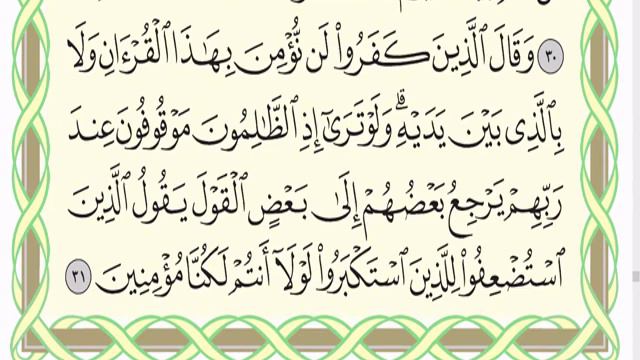 ٣٠ وَقَالَ ٱلَّذِينَ كَفَرُوا۟ لَن نُّؤْمِنَ بِهَٰذَا ٱلْقُرْءَانِ وَلَا
بِٱلَّذِى بَيْنَ يَدَيْهِ ۗ وَلَوْ تَرَىٰٓ إِذِ ٱلظَّٰلِمُونَ مَوْقُوفُونَ عِندَ
رَبِّهِمْ يَرْجِعُ بَعْضُهُمْ إِلَىٰ بَعْضٍ ٱلْقَوْلَ يَقُولُ ٱلَّذِينَ
ٱسْتُضْعِفُوا۟ لِلَّذِينَ ٱسْتَكْبَرُوا۟ لَوْلَآ أَنتُمْ لَكُنَّا مُؤْمِنِينَ ٣١